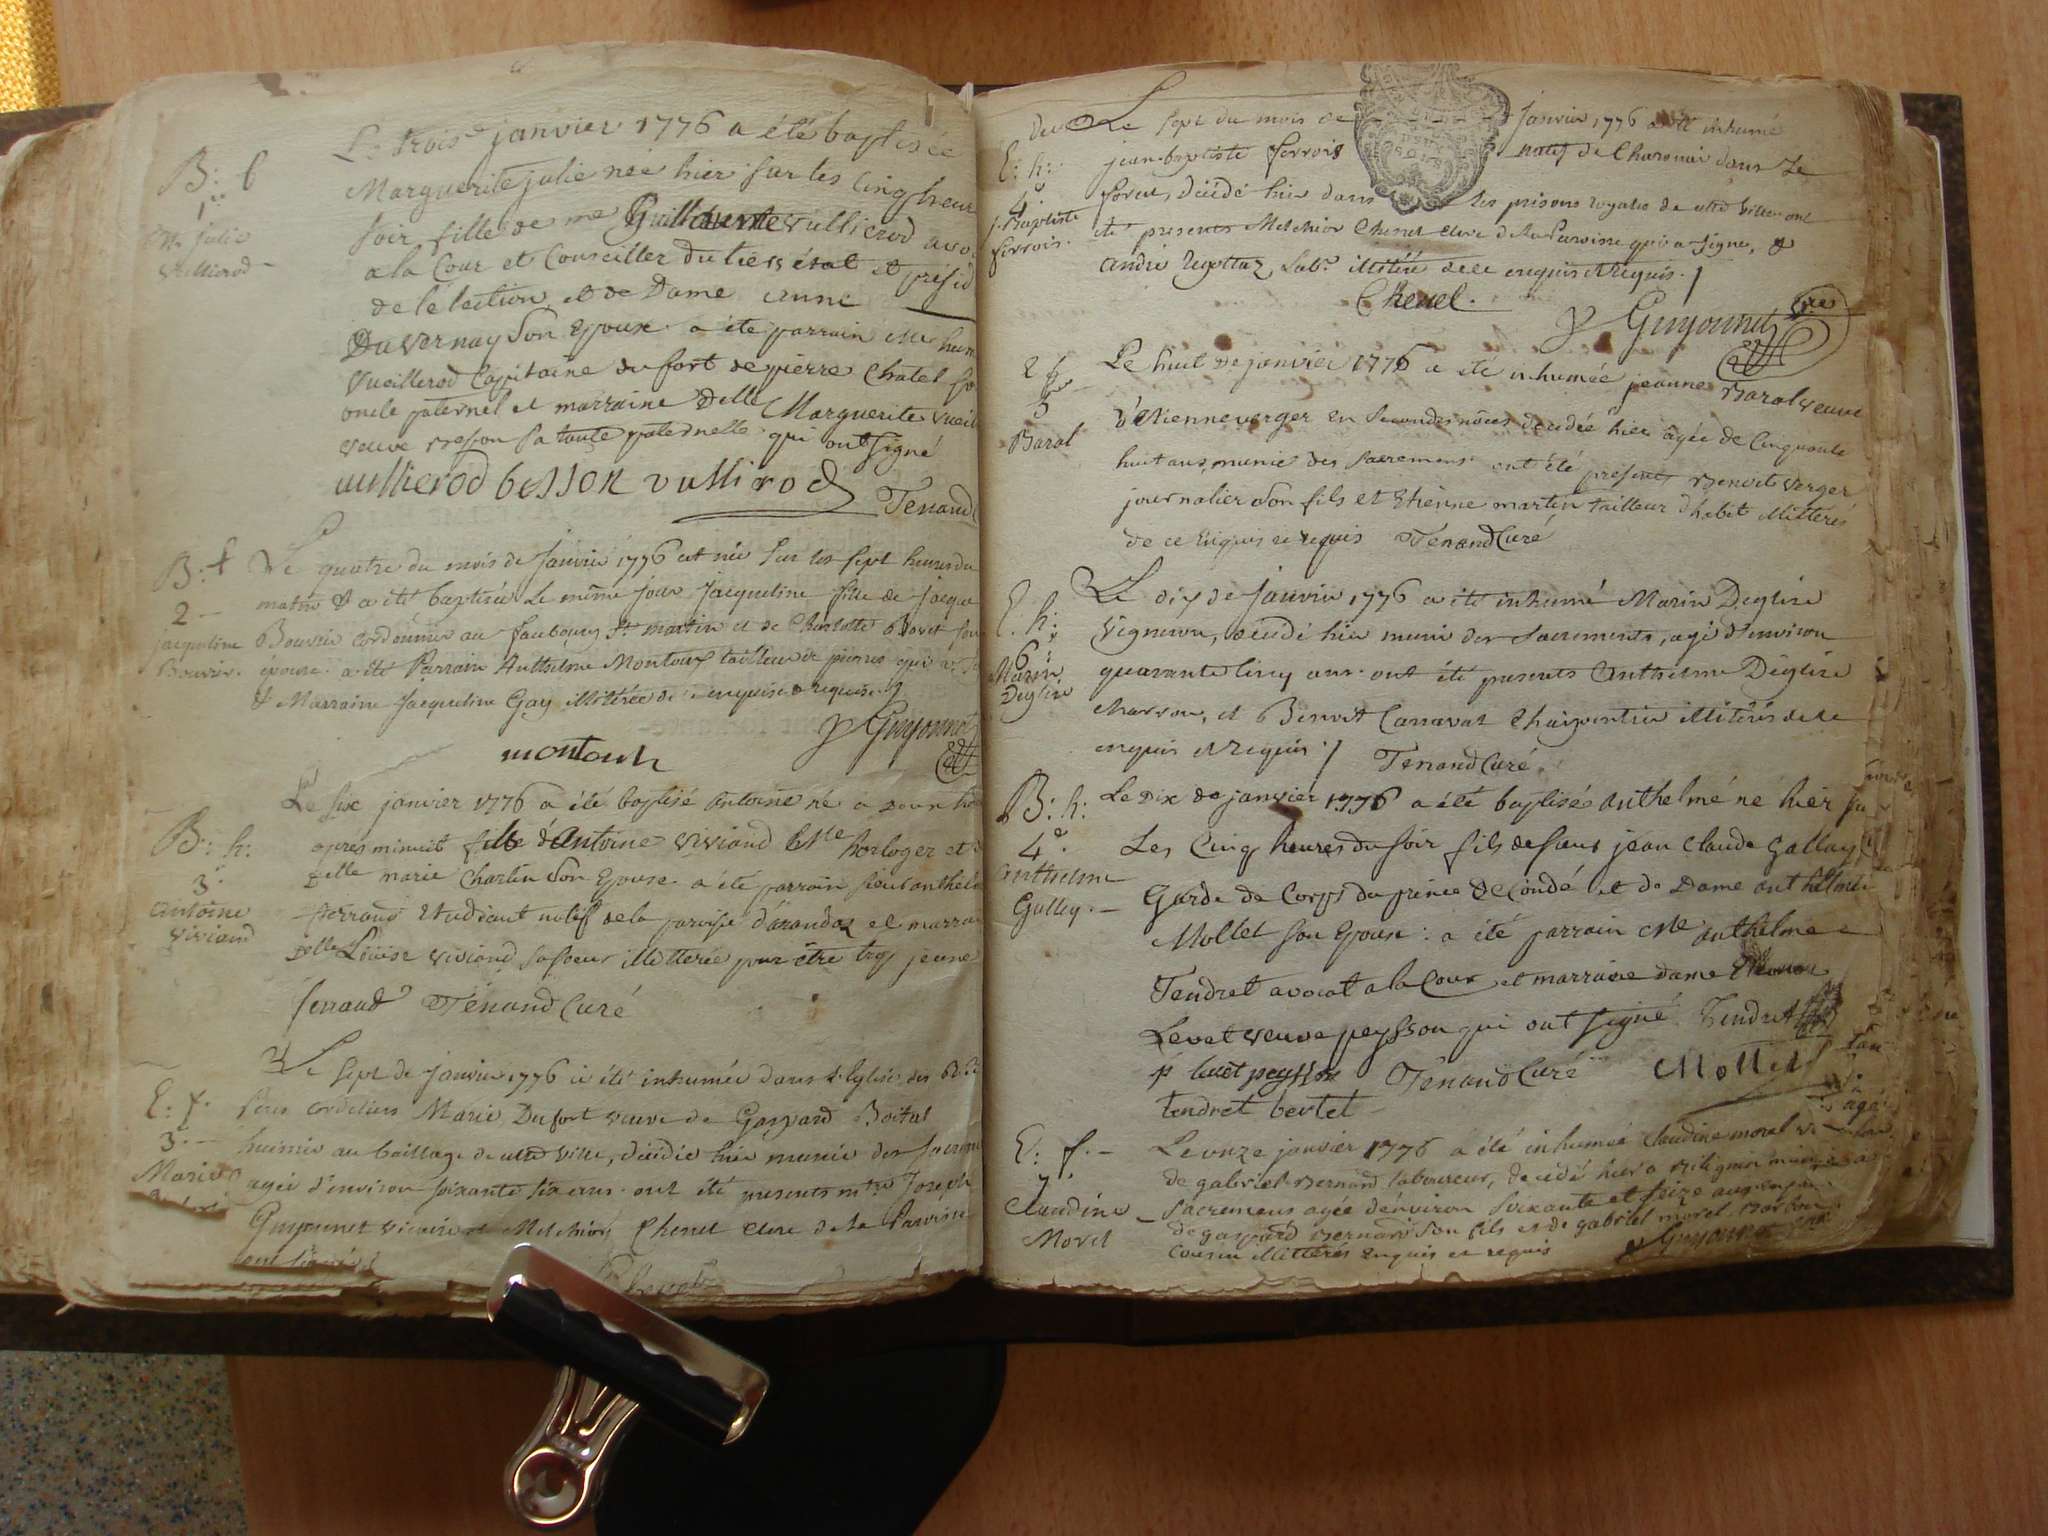 B: f
1re
Mte julie
Vullierod
Le trois janvier 1776 a été baptisée
Marguerite julie née hier sur les cinq heur
soir fille de me Guillaume vullierod avo
a la Cour et Conseiller du tiers état et présid
de lélection et de Dame anne
Duvernay son Epouse a été parrain Me
vueillerod Capitaine du fort de pierre Chatel so
oncle paternel et marraine Delle Marguerite vueil
veuve besson sa tante paternelle qui ont signé
vullierod besson vullirod
Tenand
B: f
2
jacqueline
Bouvier
Le quatre du mois de janvier 1776 est née sur les sept heures du
matin & a été baptisée le même jour jacqueline fille de jacque
Bouvier cordonnier au faubourg St martin et de Charlotte Bovet son
épouse a été Parrain Anthelme Montoux tailleur de pierres qui a
& Marraine Jacqueline Gay illiterée de ce enquise & requise
montouh
Guyonnet
B: h:
3
antoine
viviand
Le six janvier 1776 a été baptisé antoine né a douze he
apres minuit fils d'Antoine viviand Me horloger et d
Delle marie Charlin son Epouse a été parrain sieur anthelm
ferrand Etudiant natif de la paroisse d'arandas et marrai
Delle Loüise viviand sa soeur illitterée pour être trop jeune
ferrand Tenand Curé
E: f.
3
Marie
Le sept de janvier 1776 a été inhumée dans l'Eglise des RR.
Peres cordeliers Marie Dufort veuve de Gaspard Boital
huissier au bailliage de cette ville, décédée hier munie des sacreme
agée d'environ soixante six ans. ont été presents mre Joseph
Guyonnet vicaire et Melchior Chenel clerc de la Paroisse
ont signés
Chenel
E: h:
4
j. Baptiste
ferrois.
Le sept du mois de janvier 1776 a été inhumé
jean-baptiste ferrois natif de Charonnai dans le
forest, décédé hier dans les prisons royales de cette ville. ont
été presents Melchior Chenel clerc de la Paroisse qui a signé, &
andré Regottaz Labr. illitéré de ce enquis & requis.
Chenel.
Guyonnet vre
E f
5
Baral
Le huit de janvier 1776 a été inhumée jeanne Baral veuve
d'Etienne verger en secondes nôces decedée hier agée de Cinquante
huit ans, munie des sacremens ont été presents Benoit verger
journalier son fils et Etienne martin tailleur d'habit illitterés
de ce Enquis et requis Tenand Curé
E. h:
6
Marin
Deglise
Le dix de janvier 1776 a été inhumé Marin Deglise
vigneron, décédé hier muni des sacrements, agé d'environ
quarante cinq ans. ont été presents Anthelme Deglise
charron, et Benoit Carravat Charpentier illitérés de ce
enquis et requis. Tenand Curé.
B: h:
4e.
anthelme
Galley.
Le Dix de janvier 1776 a été baptisé anthelme né hier su
Les Cinq heures du soir fils de sieur jean Claude Gallay
Garde de Corps du prince de Condé et de Dame anthelmée
Mollet son Epouse: a été parrain Me anthelme
Tendret avocat a la Cour et marraine dame
Levet veuve peysson qui ont signé. Tendret
p levet peysson Tenand Curé Mollet
tendret bertet
E: f.
7.
Claudine
Morel
Le onze janvier 1776 a été inhumée Claudine morel
de gabriel Bernard laboureur, decédé hier a
sacremens agée d'environ soixante et seize ans
de gaspard Bernard son fils et de gabriel morel
cousin illitterés Enquis et requis Guyonnet vre